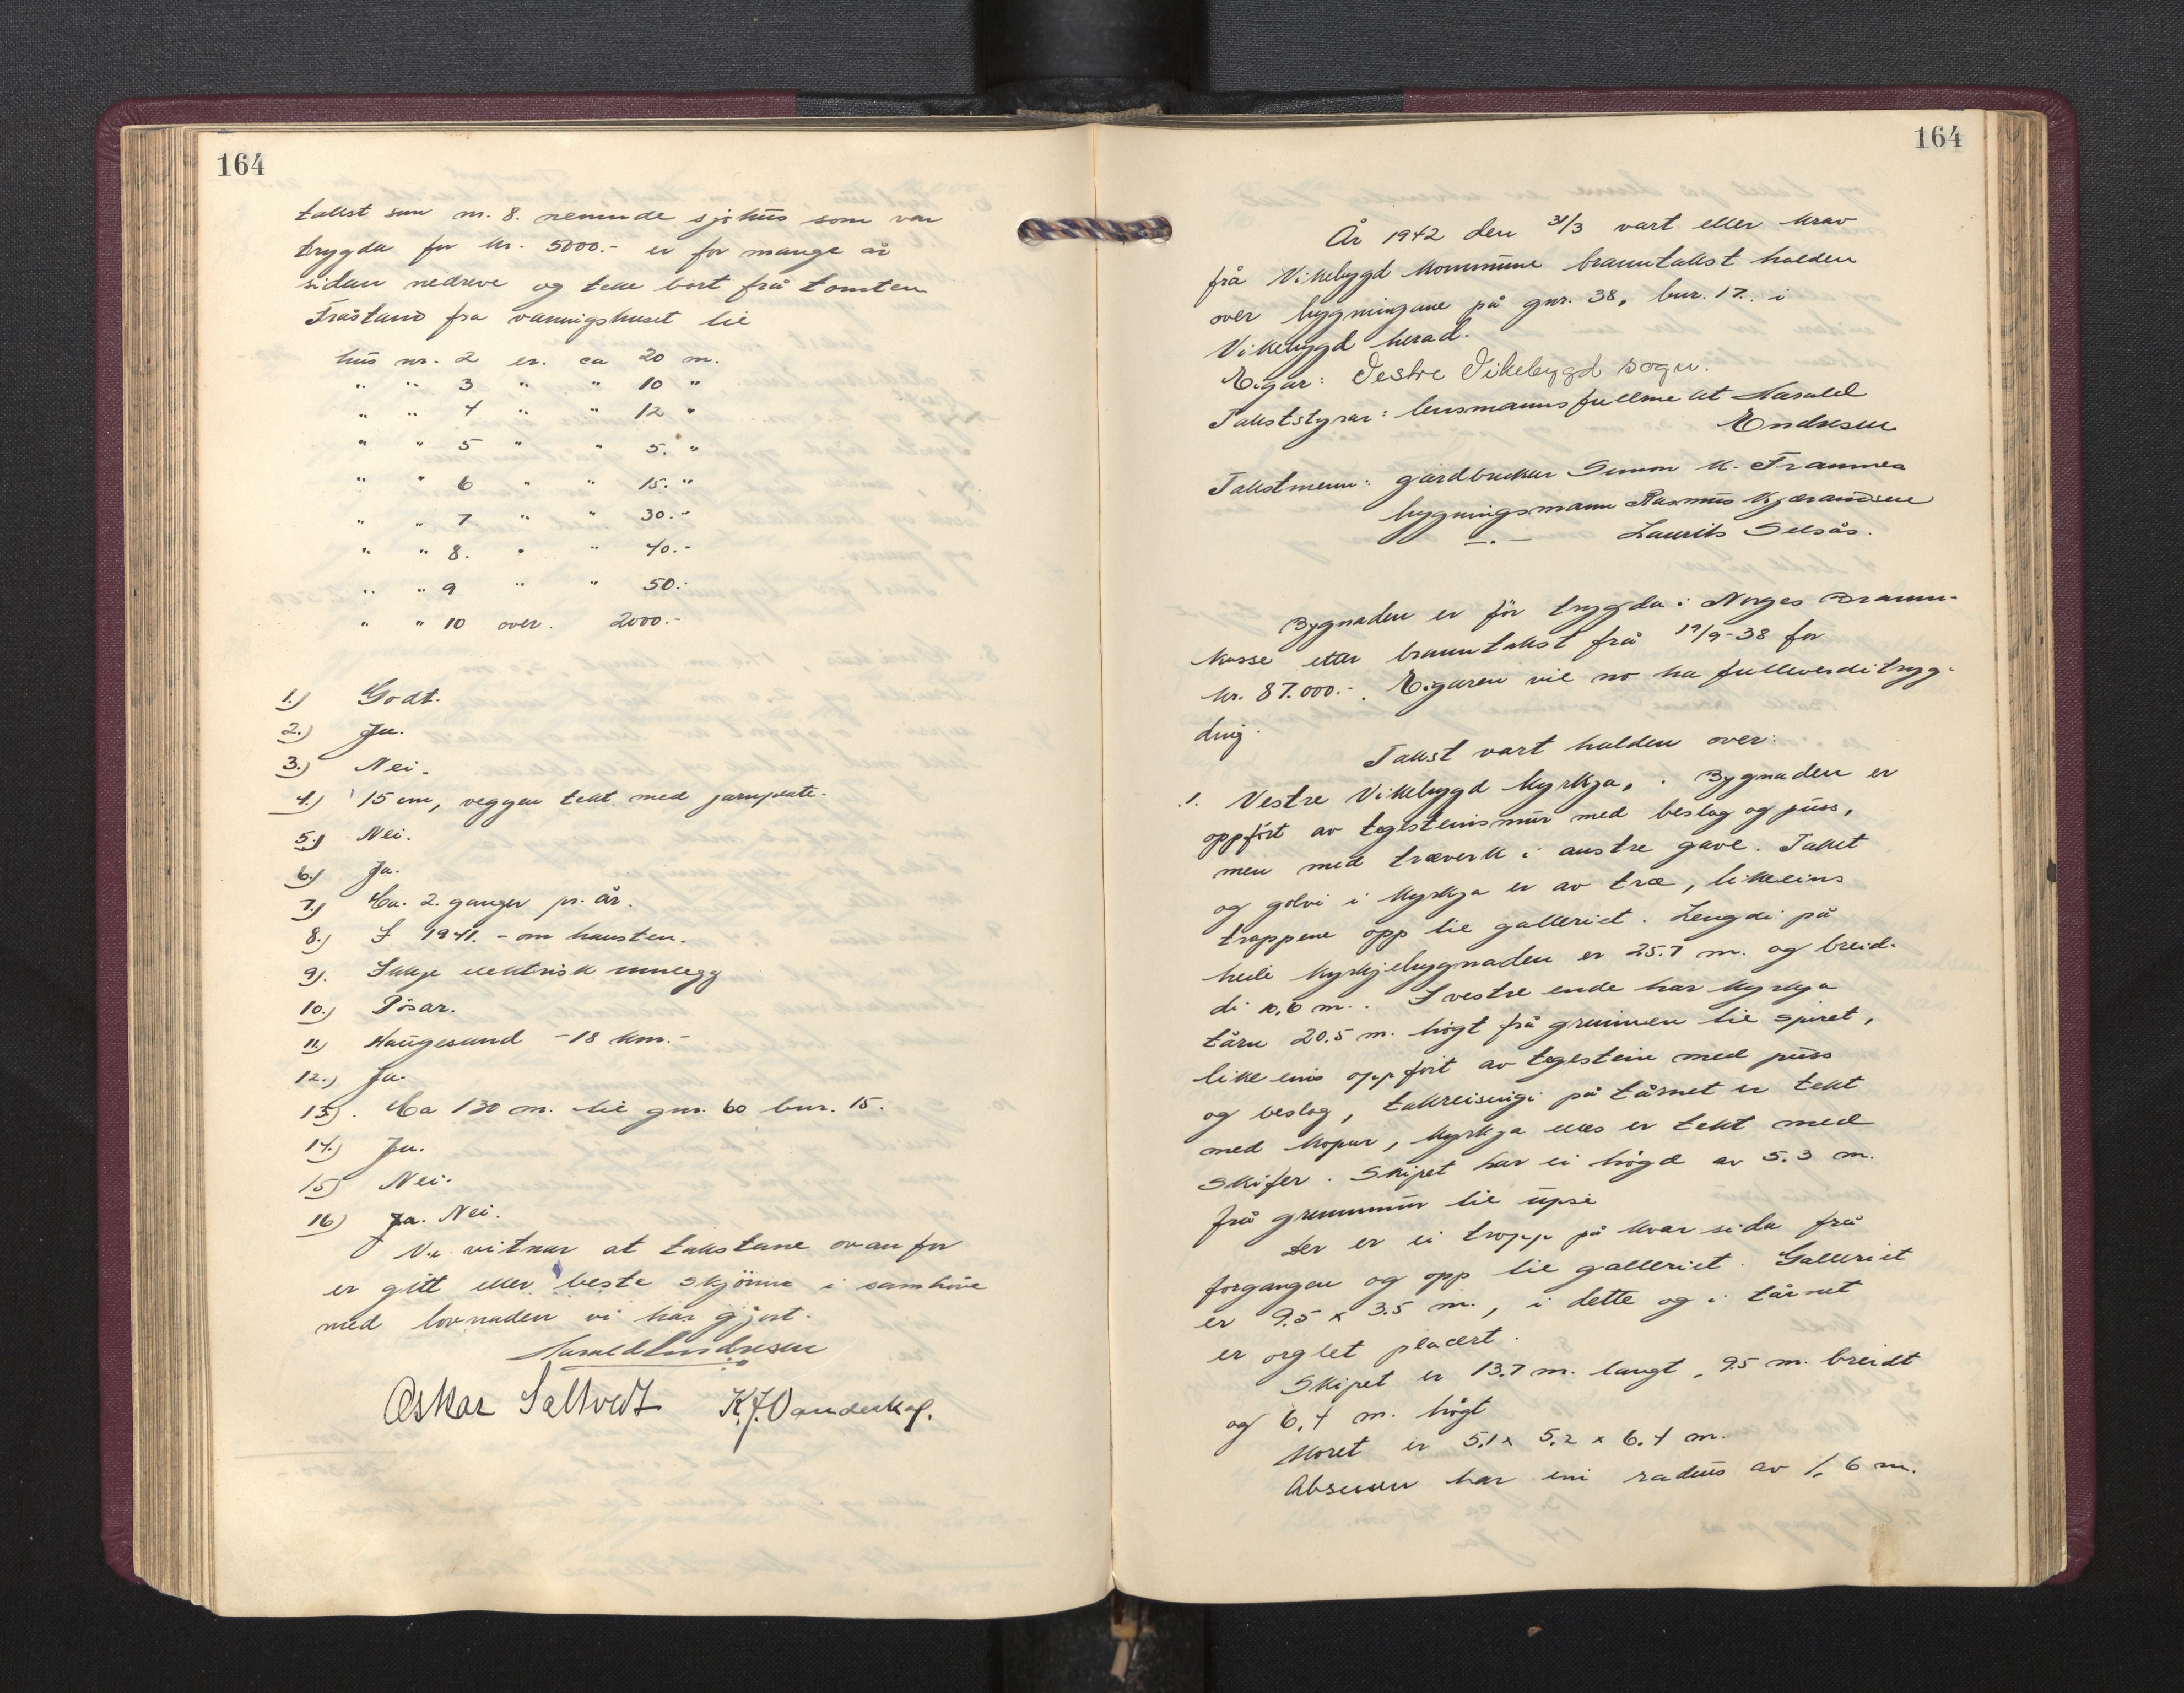 164
takst sum nr. 8. nemnde sjøhus som var
trygda for kr. 5000.- er for mange år
sidan nedreve og teke bort frå tomten
Fråstand fra vaaningshuset til
hus nr. 2 er. ca 20 m.
" " 3 " " 10 "
" " 4 " " 12 "
" " 5 " " 5. "
" " 6 " " 15. "
" " 7 " " 30.-
" " 8. " " 40.-
" " 9 " " 50.-
" " 10 over. 2000.-
1.) Godt.
2.) Ja.
3.) Nei.
4.) 15 cm, veggen tekt med jarnplate.
5.) Nei.
6.) Ja.
7.) Ca. 2. ganger pr. år.
8.) I 1941. - om hausten.
9). Ikkje elektrisk innlegg
10.) Pösar.
11.) Haugesund - 18 km.-
12.) Ja.
13). Ca 130 m. til gnr. 60 bnr. 15.
14.) Ja.
15) Nei.
16) Ja. Nei.
Vi vitnar at takstane ovanfor
er gitt etter beste skjönn i samhöve
med lovnaden vi har gjort.
Harald Endresen
Oskar Saltvedt K.J. Vanderkof.
164
År 1942 den 31/3 vart etter krav
frå Vikebygd kommune branntakst halden
over bygningane på gnr. 38, bnr. 17. i
Vikebygd herad.
Eigar: Vestre Vikebygd sogn.
Takststyrar: lensmannsfullmekt Harald
Endresen
Takstmenn: gardbrukar Simon K. Framnes
bygningsmann Rasmus Kjærandsen
— " — Laurits Selsås.
Bygnaden er för trygda i Norges Brann-
kasse etter branntakst frå 19/9-38 for
kr. 87.000.-. Eigaren vil no ha fullverditryg-
ding.
Takst vart halden over:
1. Vestre Vikebygd kyrkja, . Bygnaden er
oppfört av teglsteinsmur med beslag og puss,
men med træverk i austre gavl. Taket
og golvi i kyrkja er av træ, likeeins
trappene opp til galleriet. Lengdi på
heile kyrkjebygnaden er 25.7 m. og breid-
di 10,6 m.. I vestre ende har kyrkja
tårn 20.5 m. högt frå grunnen til spiret,
likeeins oppfört av teglstein med puss
og beslag, takreisingi på tårnet er tekt
med kopar, kyrkja elles er tekt med
skifer. Skipet har ei högd av 5.3 m.
frå grunnmur til upsi
Der er ei tropp på kvar sida frå
forgangen og opp til galleriet. Galleriet
er 9.5 x 3.5 m., i dette og i tårnet
er orglet placert.
Skipet er 13.7 m. langt, 9.5 m. breidt
og 6,4 m. högt
Koret er 5.1 x 5.2 x 6.4 m.
Absisen har ein radius av 1,6 m.